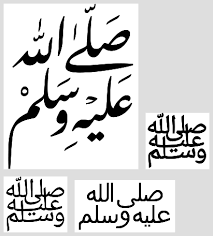 صَلَّىٰ اللهُ
عَلَيْهِ وَسَلَّمْ
صلى الله
عليه
وسلم
صلى الله
عليه
وسلم
صلى الله
عليه وسلم